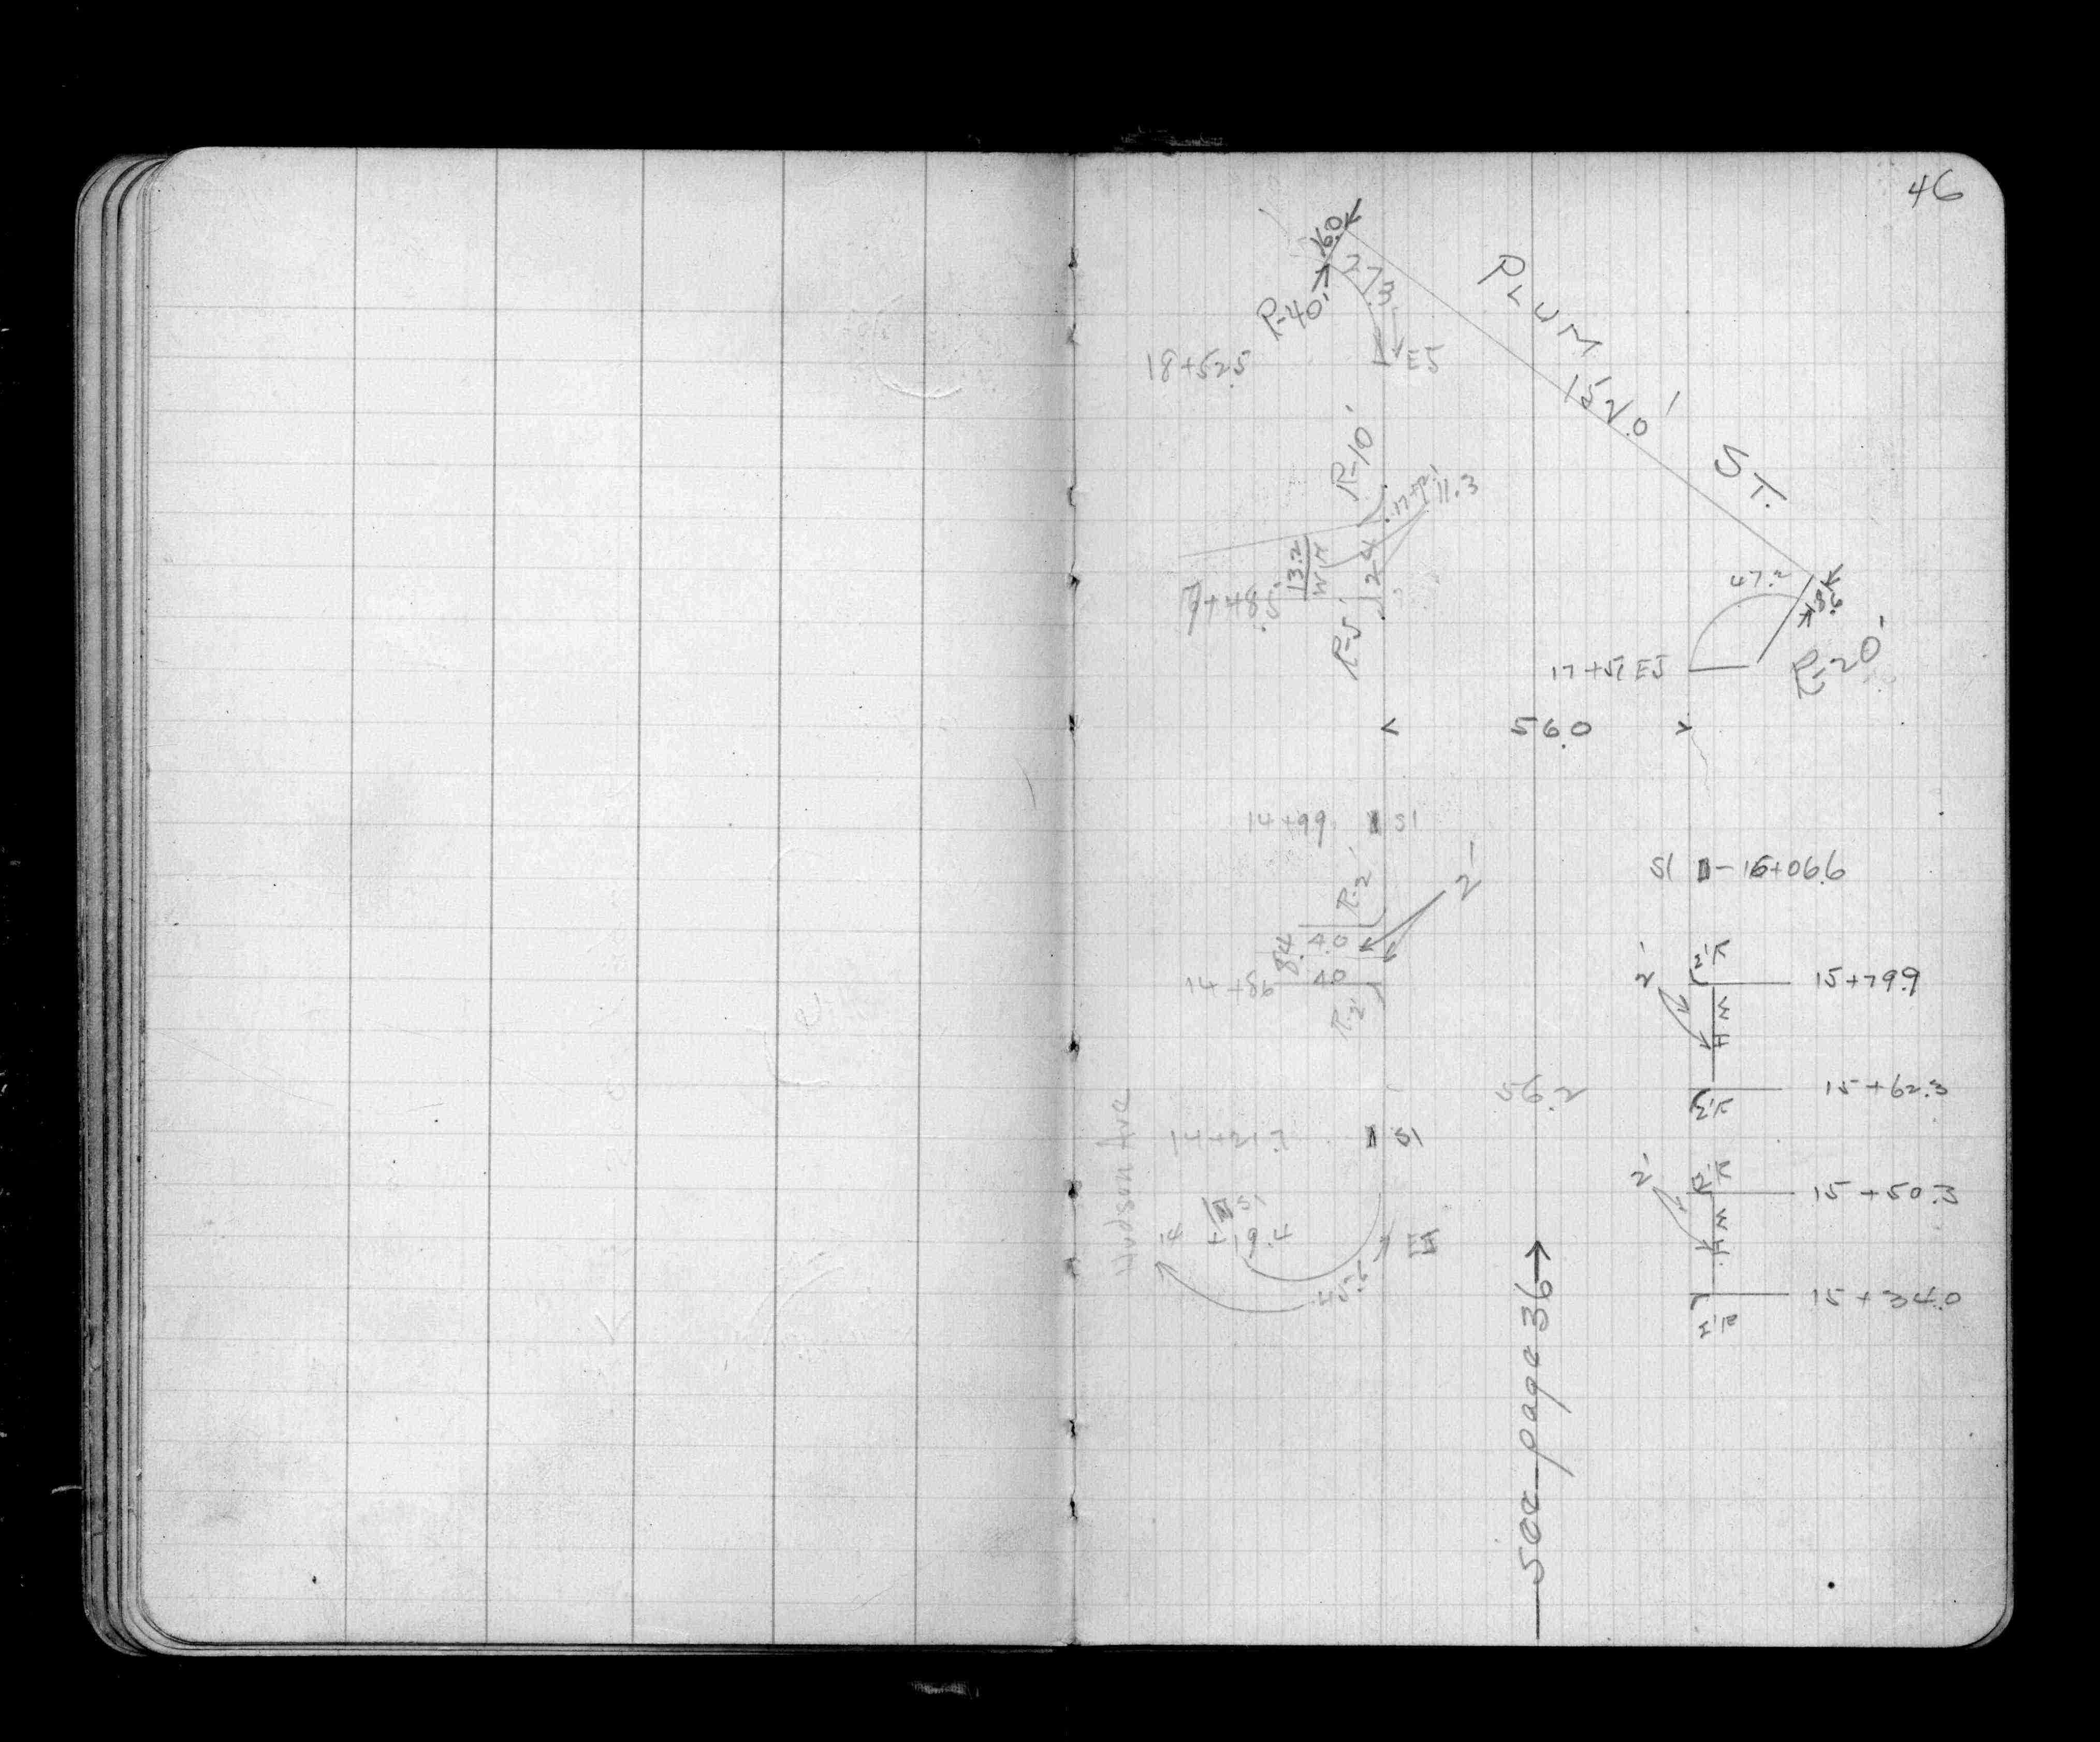 46
16.0
27.3
R-40'
PLUM ST.
18+52.5
EJ
152.0'
R-10'
11.3
13.2
24
47.2
8.6
R-5'
17+51 EJ
R-20'
56.0
14+99 S1
S1 16+06.6
R-2'
2'
8.4
4.0
4.0
14+86
R-2'
2'
15+79.9
56.2
15+62.3
Hudson Ave
14+21.7 S1
2'
15+50.3
S1
14+19.4
EJ
45.6
15+34.0
see page 36